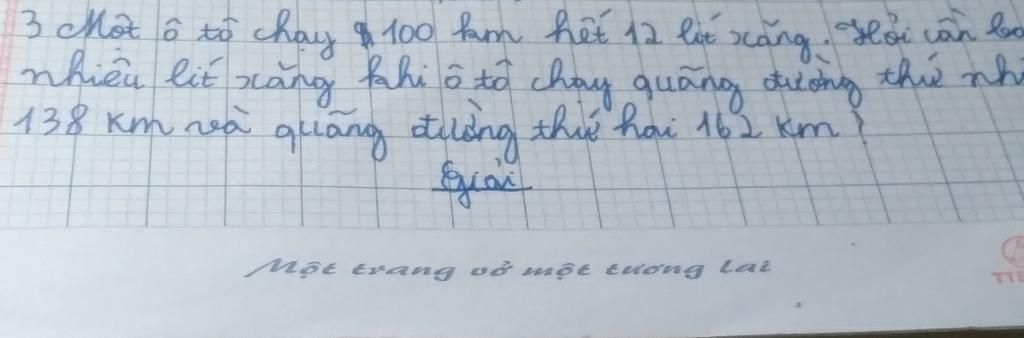 3 Một ô tô chạy 100 km hết 12 lít xăng. Hỏi cần
nhiêu lít xăng khi ô tô chạy quãng đường thứ
138 km và quãng đường thứ hai 162 km?
Giải
Một trang vở một tương lai